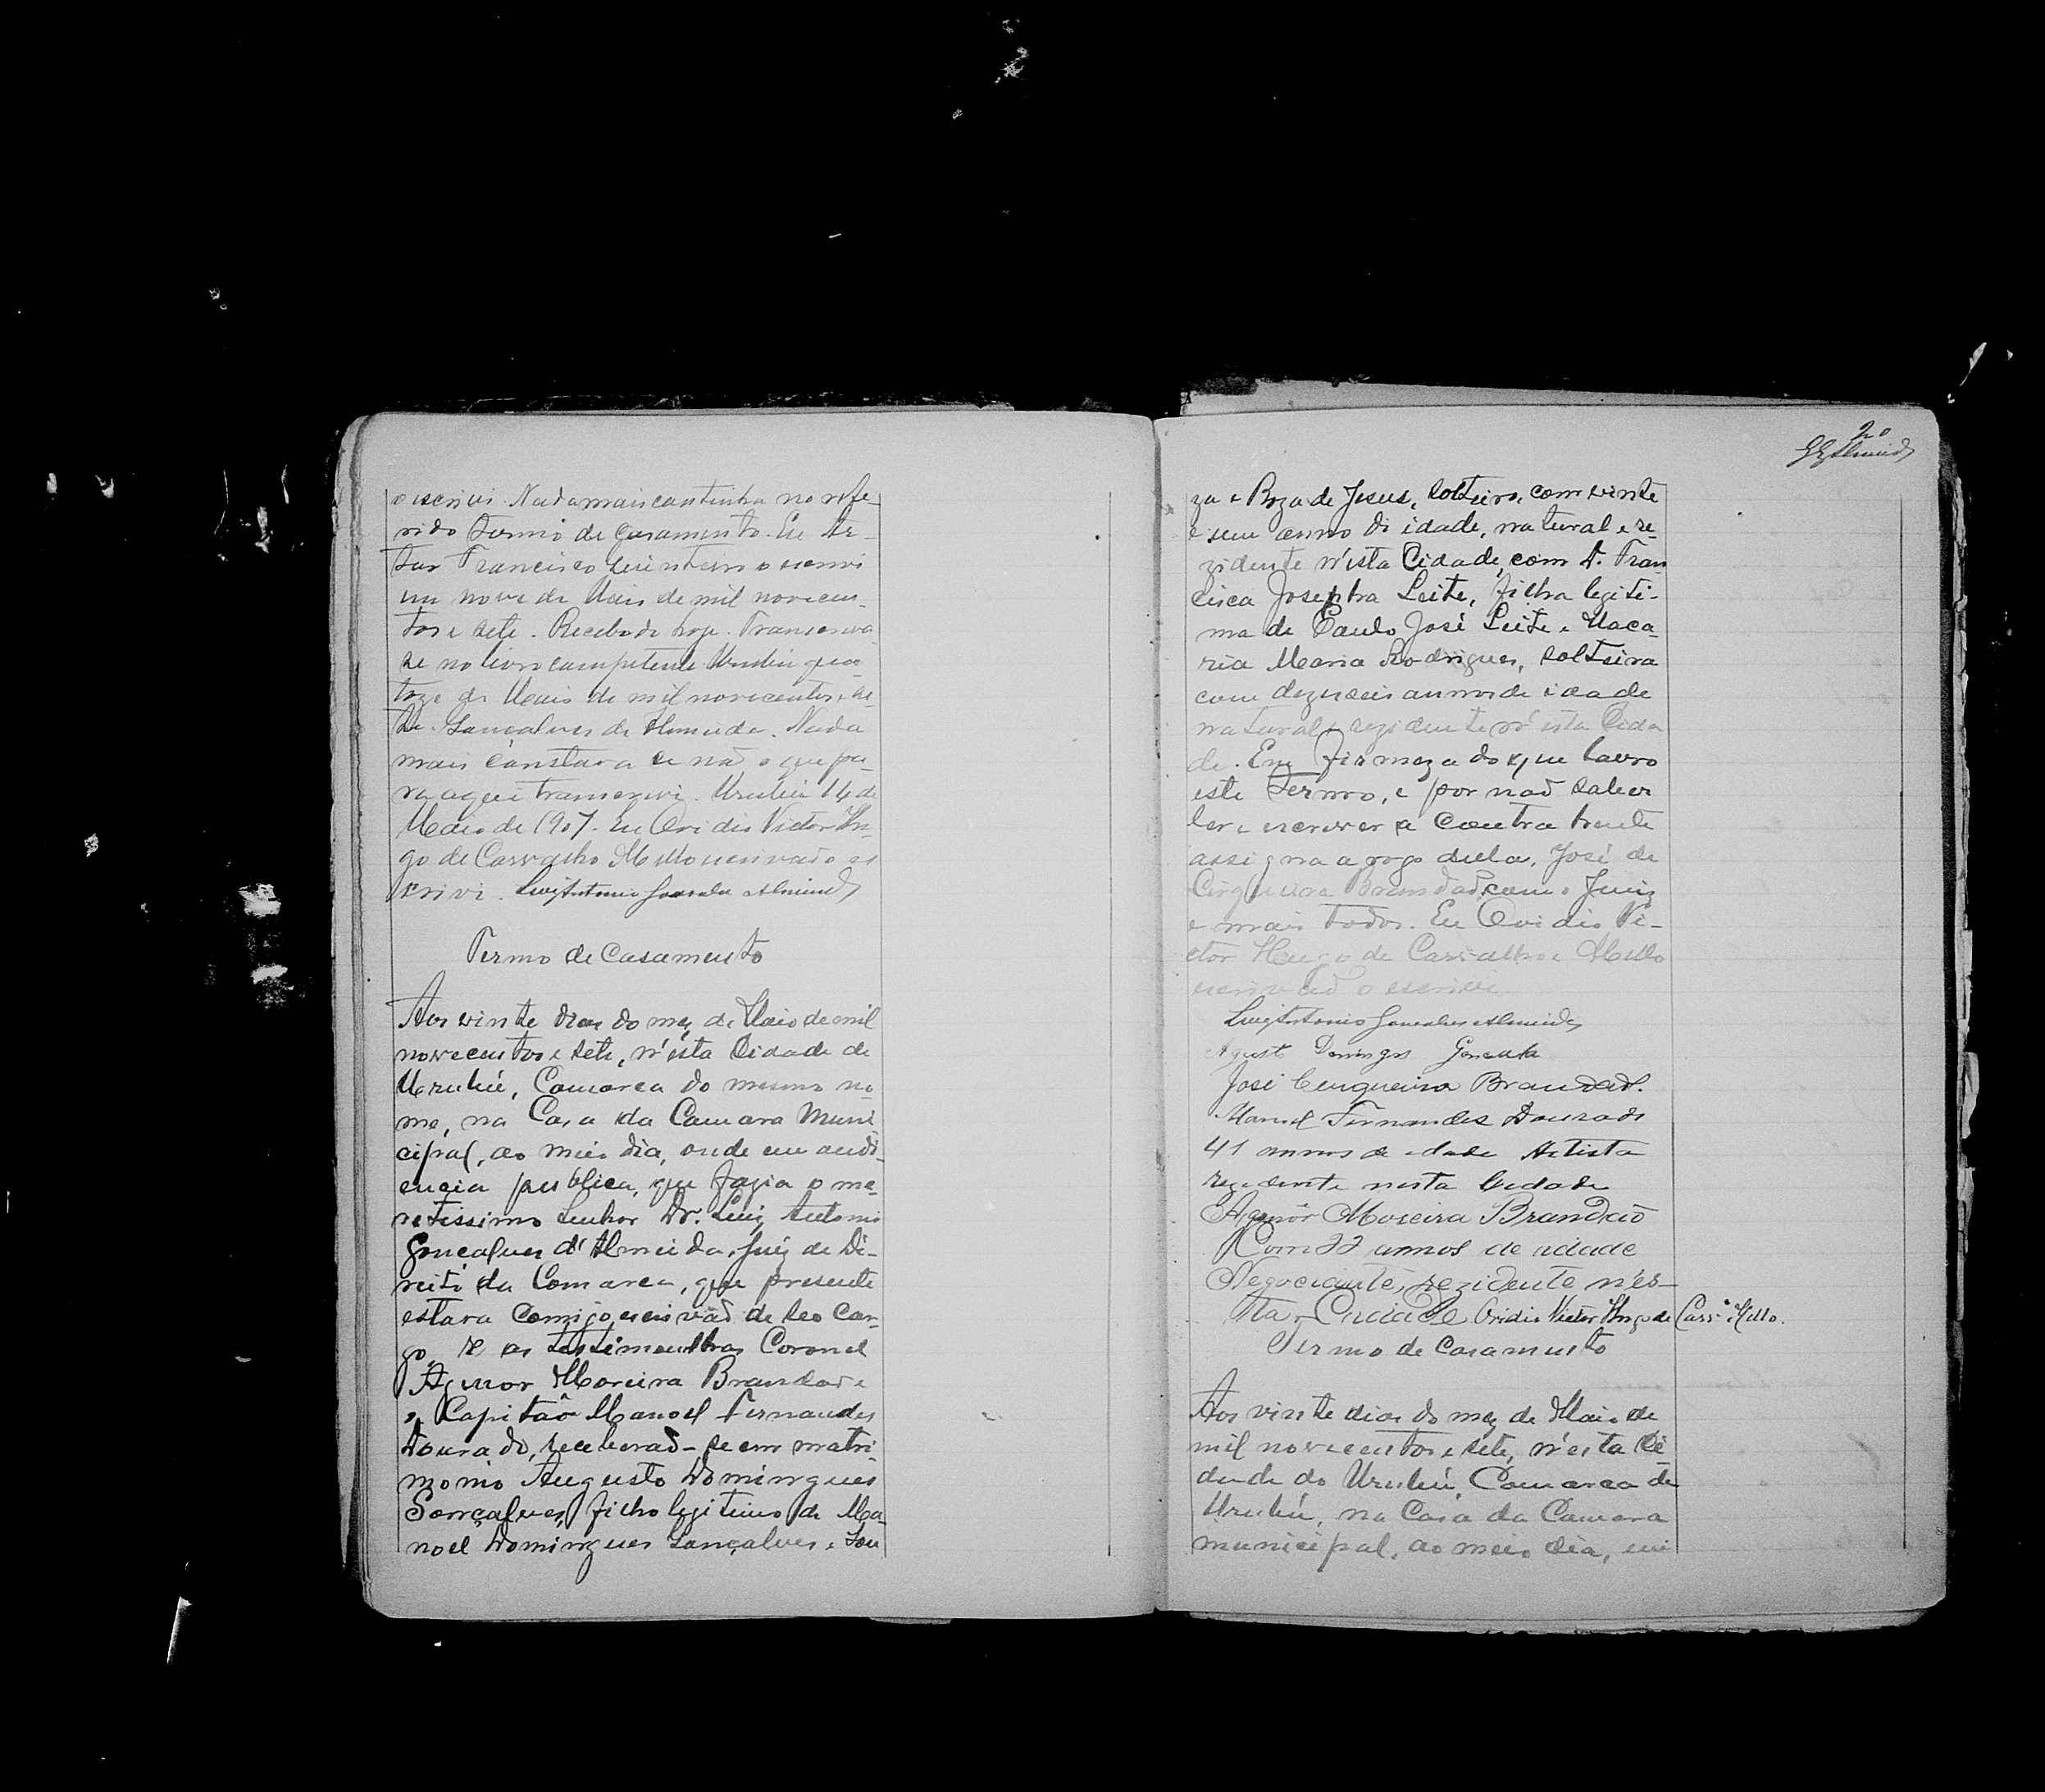 o escrivi. Nada mais continha no refe
rido termo de juramento. Eu Ar-
tur Francisco o escrevi
em nove de Maio de mil novecen-
tos e sete. Recebedo hoje. Transcreva
se no livro competente. Urubú qua-
torze de Maio de mil novecentos e se-
te. Gonçalves de Almeida. Nada
mais constava se não o que pa-
ra aqui transcrivi. Urubú 14 de
Maio de 1907. Eu Ovidio Victor Hu-
go de Carvalho Mello escrivão es
crivi. Luiz Antonio Gonçalves Almeida
Termo de Casamento
Aos vinte dias do mez de Maio de mil
novecentos e sete, n'ésta Cidade de
Urubú, Comarca do mesmo no-
me, na Casa da Camara Muni
cipal, ao meio dia, onde em audi-
encia publica, que fazia o me-
retissimo Senhor Dr. Luiz Antonio
Gonçalves d'Almeida, Juiz de Di-
reito da Comarca, que presente
estava comigo escrivão de seo car-
go, e as testimunhas Coronel
Agenor Moreira Brandão e
o Capitão Manoel Fernandes
Dourado, receberão-se em matri-
monio Augusto Domingues
Gonçalves, filho legitimo de Ma-
noel Domingues Gonçalves e Sou
20
GdAlmeida
za e Roza de Jesus, solteiro, com vinte
e um anno di idade, natural e re-
zidente n'ésta Cidade, com D. Fran
cisca Josepha Leite, filha legiti-
ma de Paulo José Leite e Maca-
ria Maria Rodrigues, solteira
com dezeseis annos de idade
natural e rezidente n'esta Cida
de. Em firmeza do que lavro
este termo, e por não saber
ler e escrever a contratrante
assigna a rogo della, José de
Cirqueira Brandão, com o Juiz
e mais todos. Eu Ovidio Vi-
ctor Hugo de Carvalho e Mello
escrivão o escrivi
Luiz Antonio Gonçalves Almeida
Agusto Domingos Gonsalves
José Cerqueira Brandão.
Manoel Fernandes Dourado
41 annos de edade Artista
rezedente nesta Cedade
Agenôr Moreira Brandão
Com 22 annos de idade
Negociante, rezidente n'es-
ta Cidade Ovidio Victor Hugo de Carv.º e Mello.
Termo de Casamento
Aos vinte dias do mez de Maio de
mil novecentos e sete, n'esta Ci
dade do Urubú, Comarca de
Urubú, na Casa da Camara
municipal, ao meio dia, em